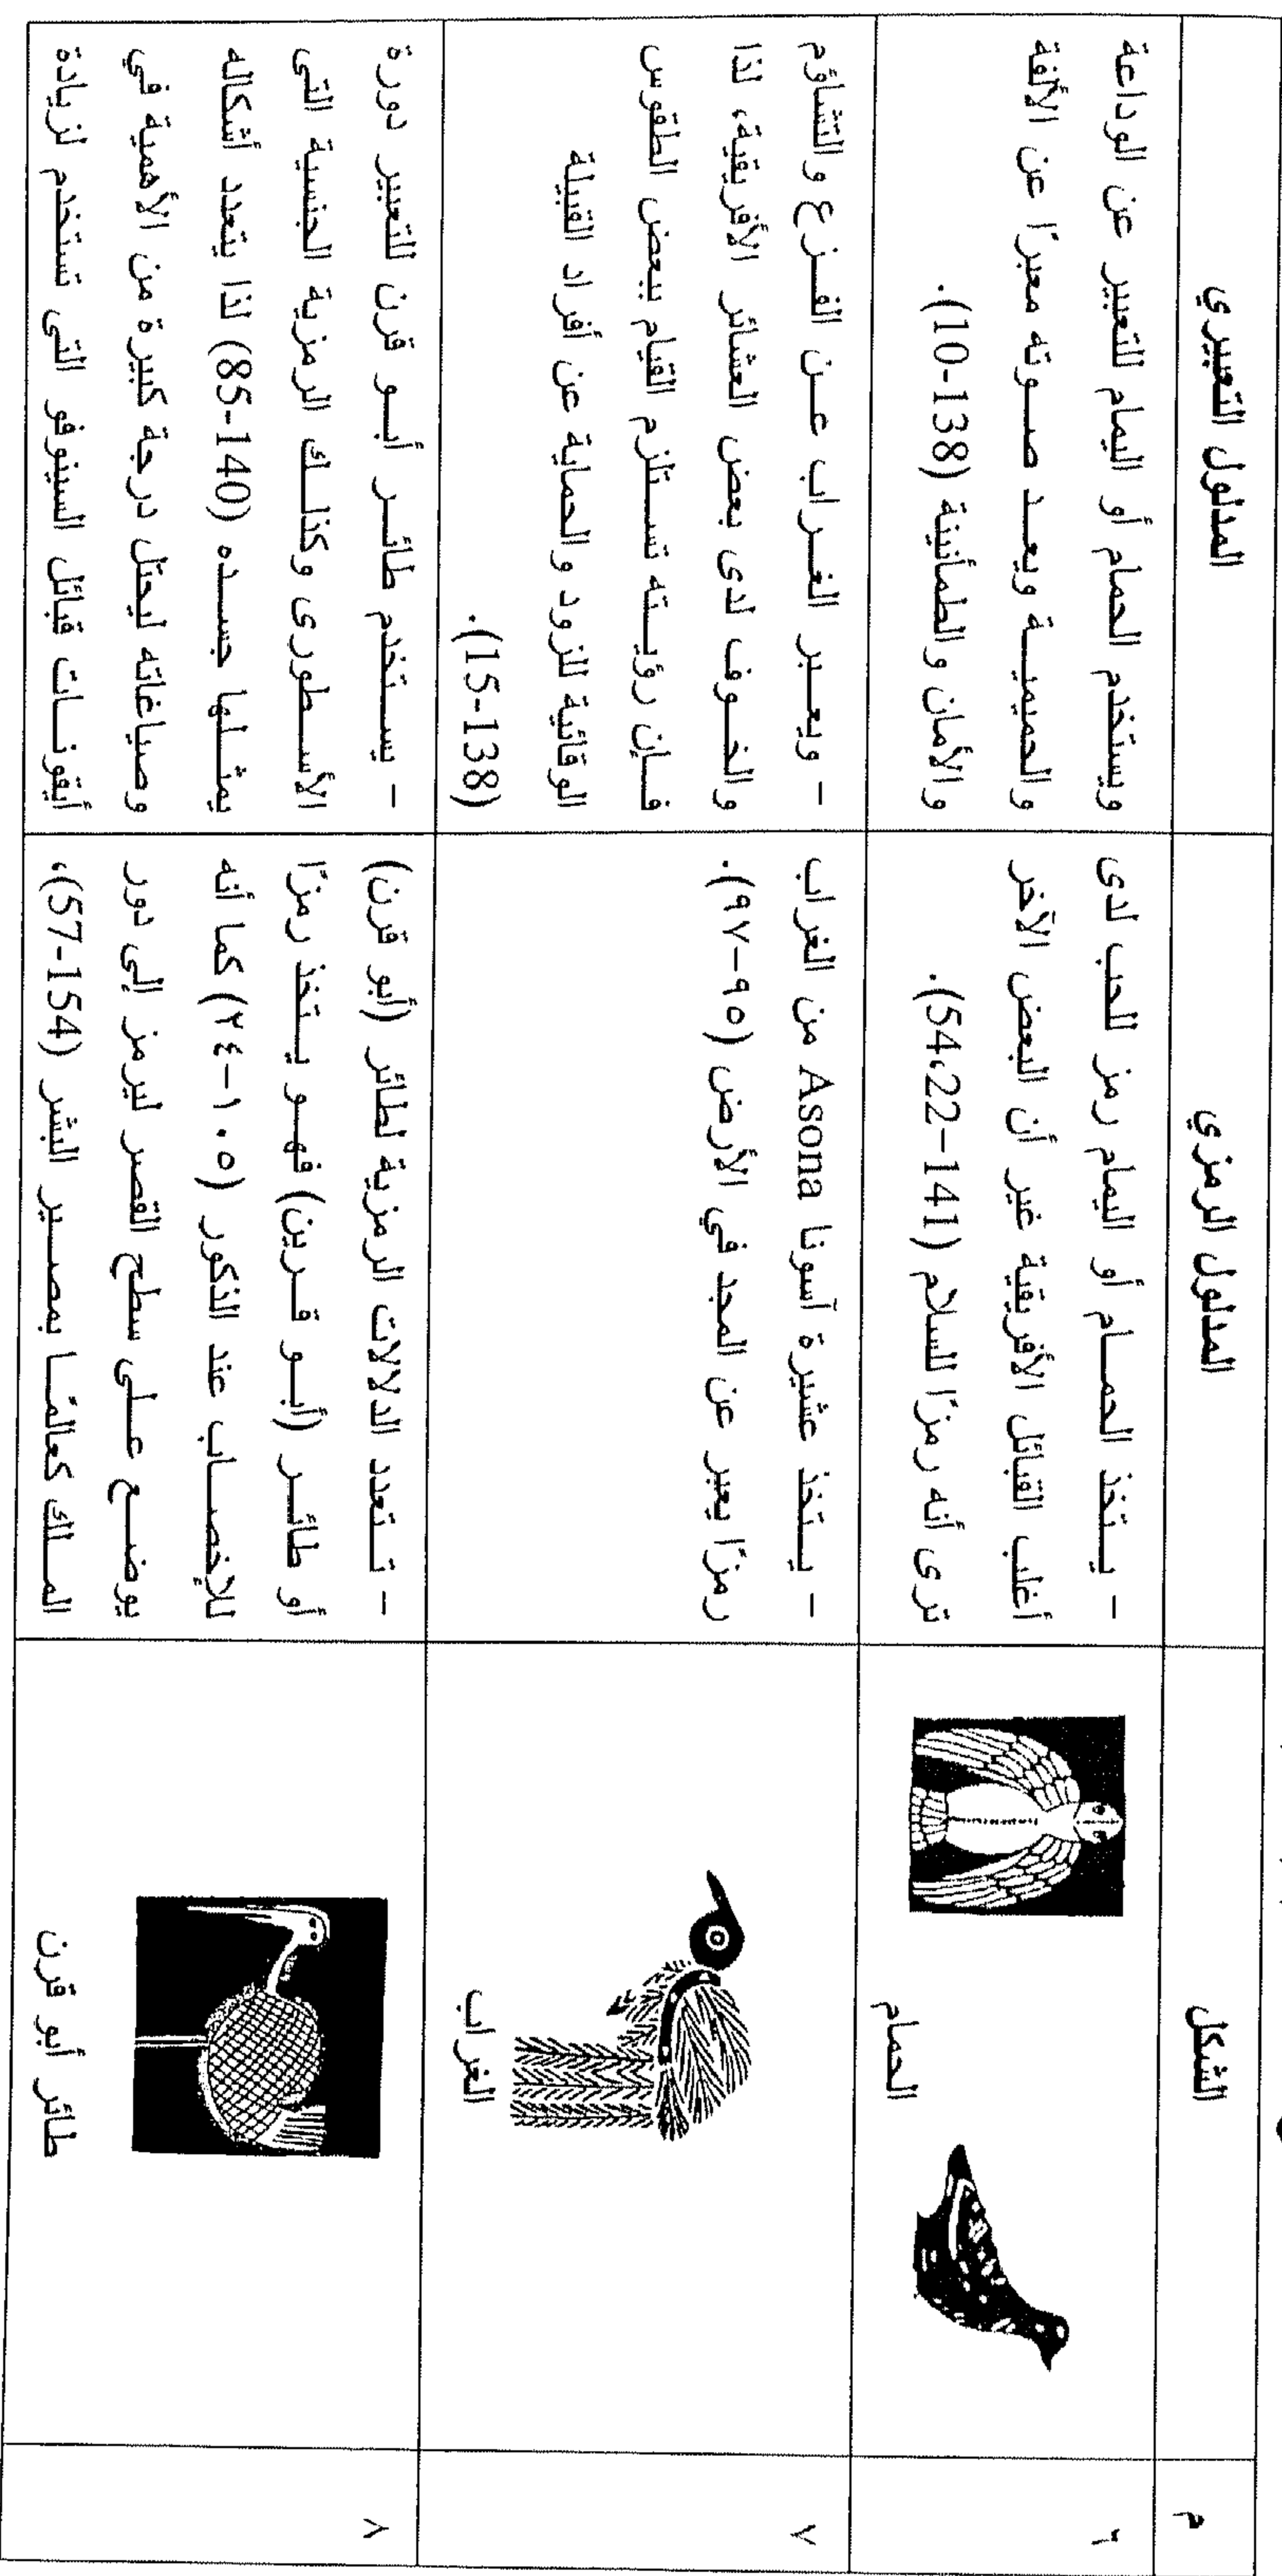 م
الشكل
المدلول الرمزي
المدلول التعبيري
٦
الحمام
- يتخذ الحمام أو اليمام رمز للحب لدى
أغلب القبائل الأفريقية غير أن البعض الآخر
ترى أنه رمزًا للسلام (141-54،22).
ويستخدم الحمام أو اليمام للتعبير عن الوداعة
والحميمية ويعد صوته معبرًا عن الألفة
والأمان والطمأنينة (138-10).
٧
الغراب
- يتخذ عشيرة آسونا Asona من الغراب
رمزًا يعبر عن المجد في الأرض (٩٥-٩٧).
- ويعبر الغراب عن الفزع والتشاؤم
والخوف لدى بعض العشائر الأفريقية، لذا
فإن رؤيته تستلزم القيام ببعض الطقوس
الوقائية للزود والحماية عن أفراد القبيلة
(138-15).
٨
طائر أبو قرن
- تتعدد الدلالات الرمزية لطائر (أبو قرن)
أو طائر (أبو قرين) فهو يتخذ رمزًا
للإخصاب عند الذكور (١٠٥-٢٤) كما أنه
يوضع على سطح القصر ليرمز إلى دور
الملك كعالمًا بمصير البشر (154-57)،
- يستخدم طائر أبو قرن للتعبير دورة
الأسطورى وكذلك الرمزية الجنسية التى
يمثلها جسده (140-85) لذا يتعدد أشكاله
وصياغاته ليحتل درجة كبيرة من الأهمية في
أيقونات قبائل السينوفو التى تستخدم لزيادة